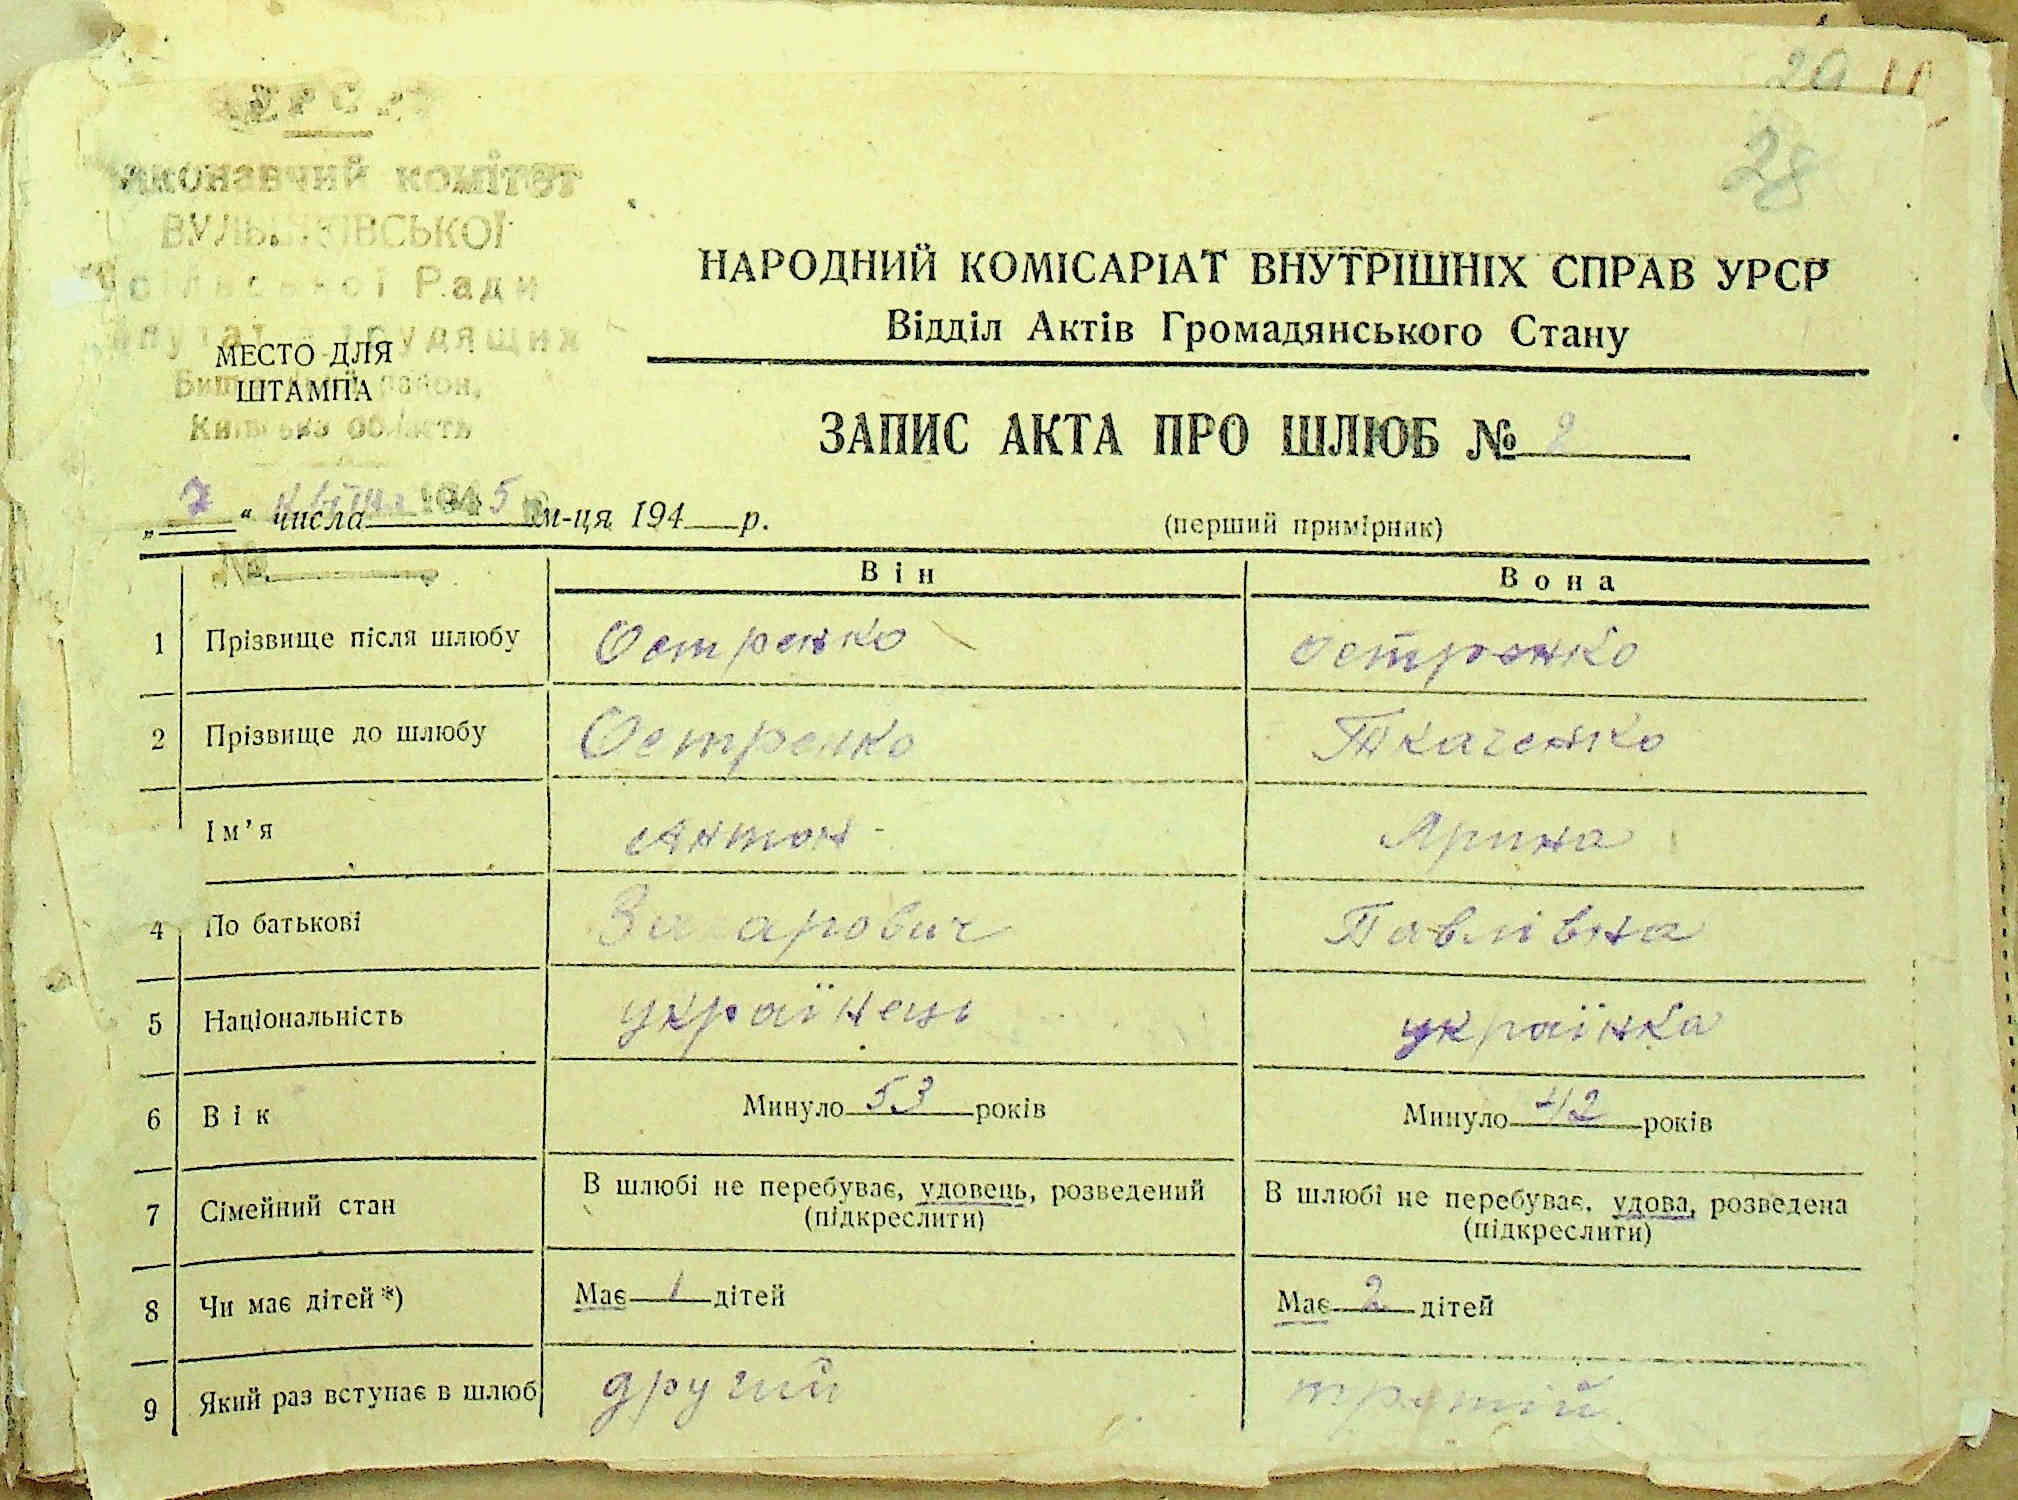 29
28
комітет
Ради
трудящих
МЕСТО ДЛЯ
ШТАМПА
область
НАРОДНИЙ КОМІСАРІАТ ВНУТРІШНІХ СПРАВ УРСР
Відділ Актів Громадянського Стану
ЗАПИС АКТА ПРО ШЛЮБ № 2
„ 7 “ числа 1945 м-ця 194 р.
(перший примірник)
№
Він Вона
1 Прізвище після шлюбу Остренко Остренко
2 Прізвище до шлюбу Остренко Ткаченко
Ім’я Антон Ярина
4 По батькові Захарович Павлівна
5 Національність українець українка
6 Вік Минуло 53 років Минуло 42 років
7 Сімейний стан В шлюбі не перебуває, удовець, розведений В шлюбі не перебуває, удова, розведена
(підкреслити) (підкреслити)
8 Чи має дітей *) Має 1 дітей Має 2 дітей
9 Який раз вступає в шлюб другий третій